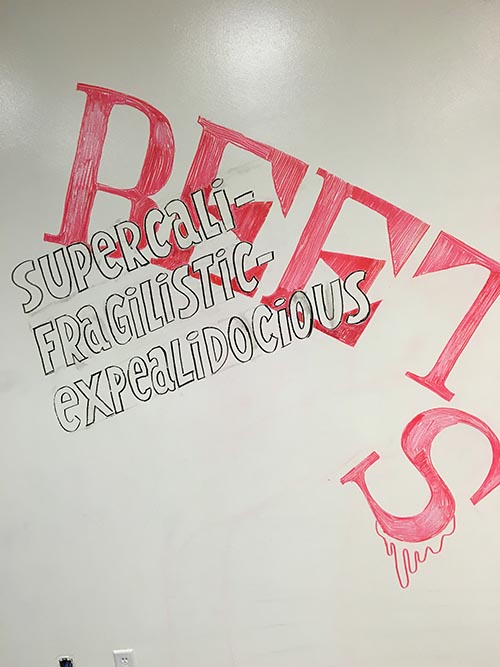 BEETS
SUPERCALI-
FRAGILISTIC-
EXPEALIDOCIOUS